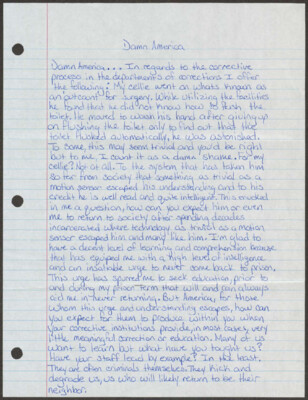 Damn America
Damn America... In regards to the corrective
process in the department of corrections I offer
the following: My cellie went on whats known as
an outcount for surgery. While utilizing the facilities
he found that he did not know how to flush the
toilet. He moved to wash his hands after giving up
on flushing the toilet only to find out that the
toilet flushed automatically, he was astonished.
To some, this may seem trivial and you'd be right
but to me, I count it as a damn shame. For my
cellie? Not at all. To the system that has taken him
so far from society that something as trivial as a
motion sensor escaped his understanding and to his
credit he is well read and quite intelligent. This evoked
in me a question, how can you expect him or even
me to return to society after spending decades
incarcerated where technology as trivial as a motion
sensor escaped him and many like him. I'm glad to
have a decent level of learning and comprehension because
that has equiped me with a high level of intelligence
and an insatiable urge to never come back to prison.
This urge has spurred me to seek education prior to
and during my prison term that will and pray always
aid me in never returning. But America, for those
whom this urge and understanding escapes, how can
you expect for them to produce within you when
your corrective institutions provide, in most cases, very
little meaningful correction or education. Many of us
want to learn but what have you taught us?
Have your staff lead by example? In the least,
They are often criminals themselves. They kick and
degrade us, us who will likely return to be their
neighbor.